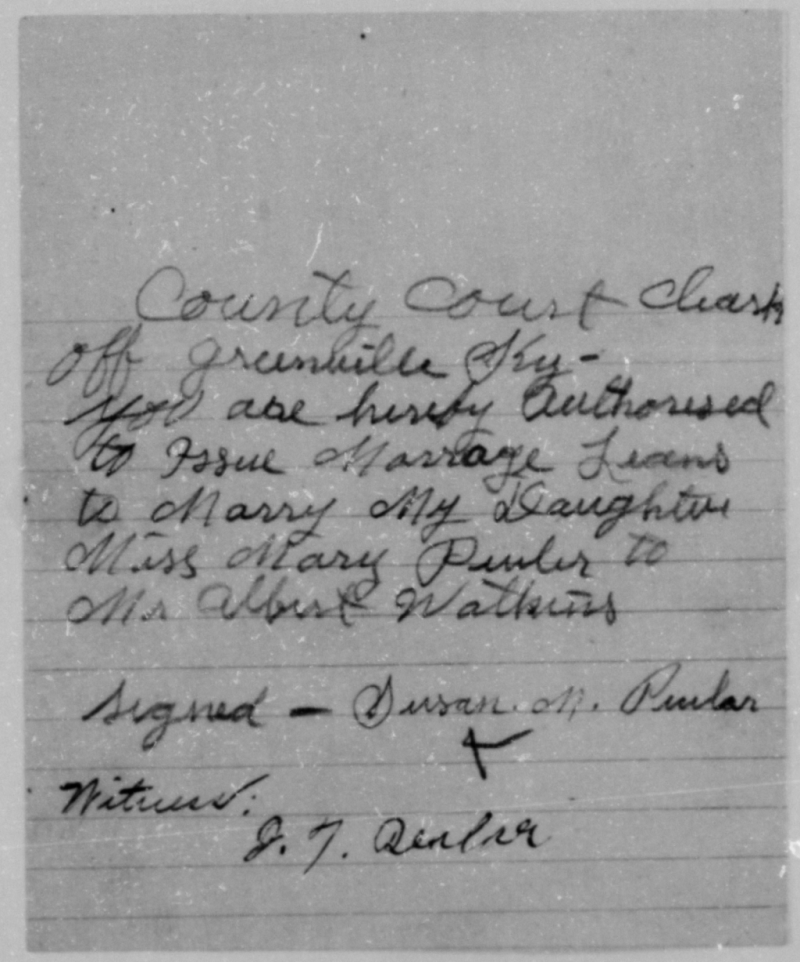 County Court Clark
off Greenville Ky-
you are hereby Authoresed
to Issue Marrage Leans
to Marry My Daughter
Miss Mary Penler to
Mr Albert Watkins
Signed - Susan. M. Penlar
X
Witness:
J. T. Penler